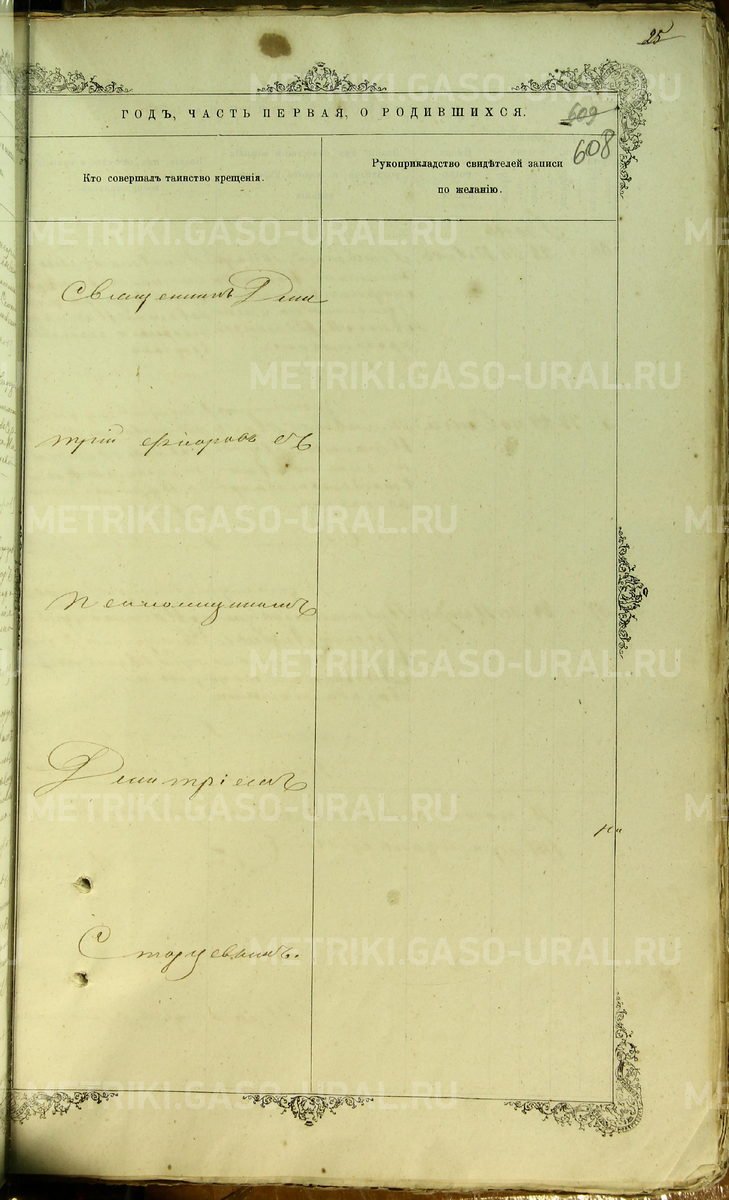 25
ГОДЪ, ЧАСТЬ ПЕРВАЯ, О РОДИВШИХСЯ.
609
608
Кто совершалъ таинство крещенія.
Рукоприкладство свидѣтелей записи
по желанію.
Священникъ Дими
трій съ
псаломщикомъ
Димитріемъ
Старцевымъ.
METRIKI.GASO-URAL.RU